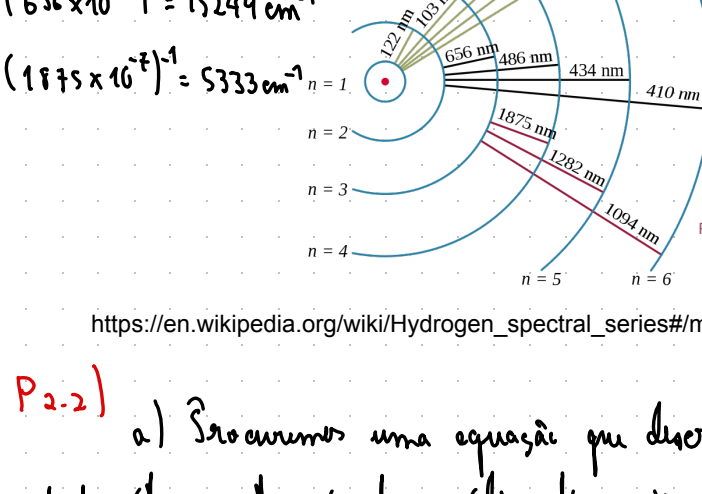 (656 x 10⁻⁷)⁻¹ = 15244 cm⁻¹
(1875 x 10⁻⁷)⁻¹ = 5333 cm⁻¹
122 nm
103 n
656 nm
486 nm
434 nm
410 nm
n = 1
1875 nm
1282 nm
1094 nm
n = 2
n = 3
n = 4
n = 5
n = 6
https://en.wikipedia.org/wiki/Hydrogen_spectral_series#/m
P 2.2)
a) Procuremos uma equação que descr